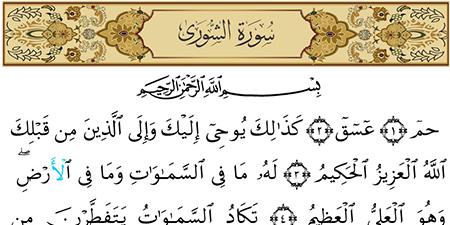 سُورَةُ الشُّورَى
بِسْمِ اللَّهِ الرَّحْمَٰنِ الرَّحِيمِ
حمٓ ﴿١﴾ عٓسٓقٓ ﴿٢﴾ كَذَٰلِكَ يُوحِىٓ إِلَيْكَ وَإِلَى الَّذِينَ مِن قَبْلِكَ
اللَّهُ الْعَزِيزُ الْحَكِيمُ ﴿٣﴾ لَهُۥ مَا فِى السَّمَـٰوَٰتِ وَمَا فِى الْأَرْضِ ۖ
وَهُوَ الْعَلِىُّ الْعَظِيمُ ﴿٤﴾ تَكَادُ السَّمَـٰوَٰتُ يَتَفَطَّرْنَ مِن